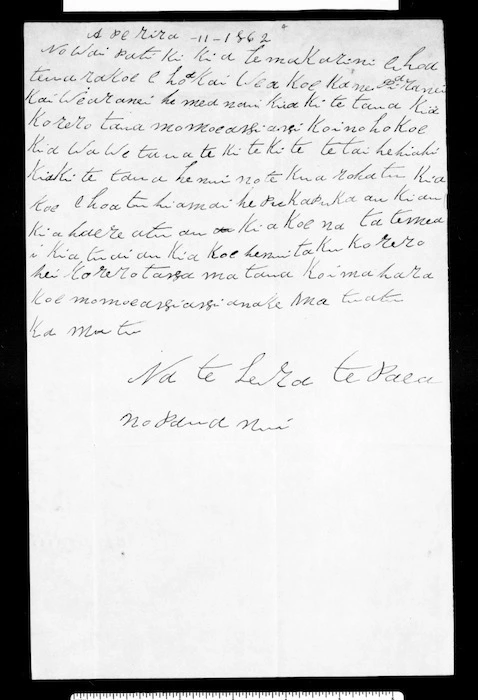 Aperira -11- 1862
No Wai patu ki Kia te makarini E hoa
tena ra koe E hoa kai Wea koe kanei ra nei
kai Wea ranei he mea naui kia kite taua kia
korero taua mo moeangiangi koi noho koe
kia Wawe taua te kitekite te tai hehiahi
kia kite taua he nui no te kuarohatu kia
koe E hoa tu hiamai he pukapuka au ki au
kia haere atu au kia koe na ta te mea
i kia tu ai au kia koe he nui taku korero
hei korerotanga ma taua koi mahara
koe mo moeangiangi anake Ma tuatu
Ka mutu
Na te Lura te Paea
no Paua nui